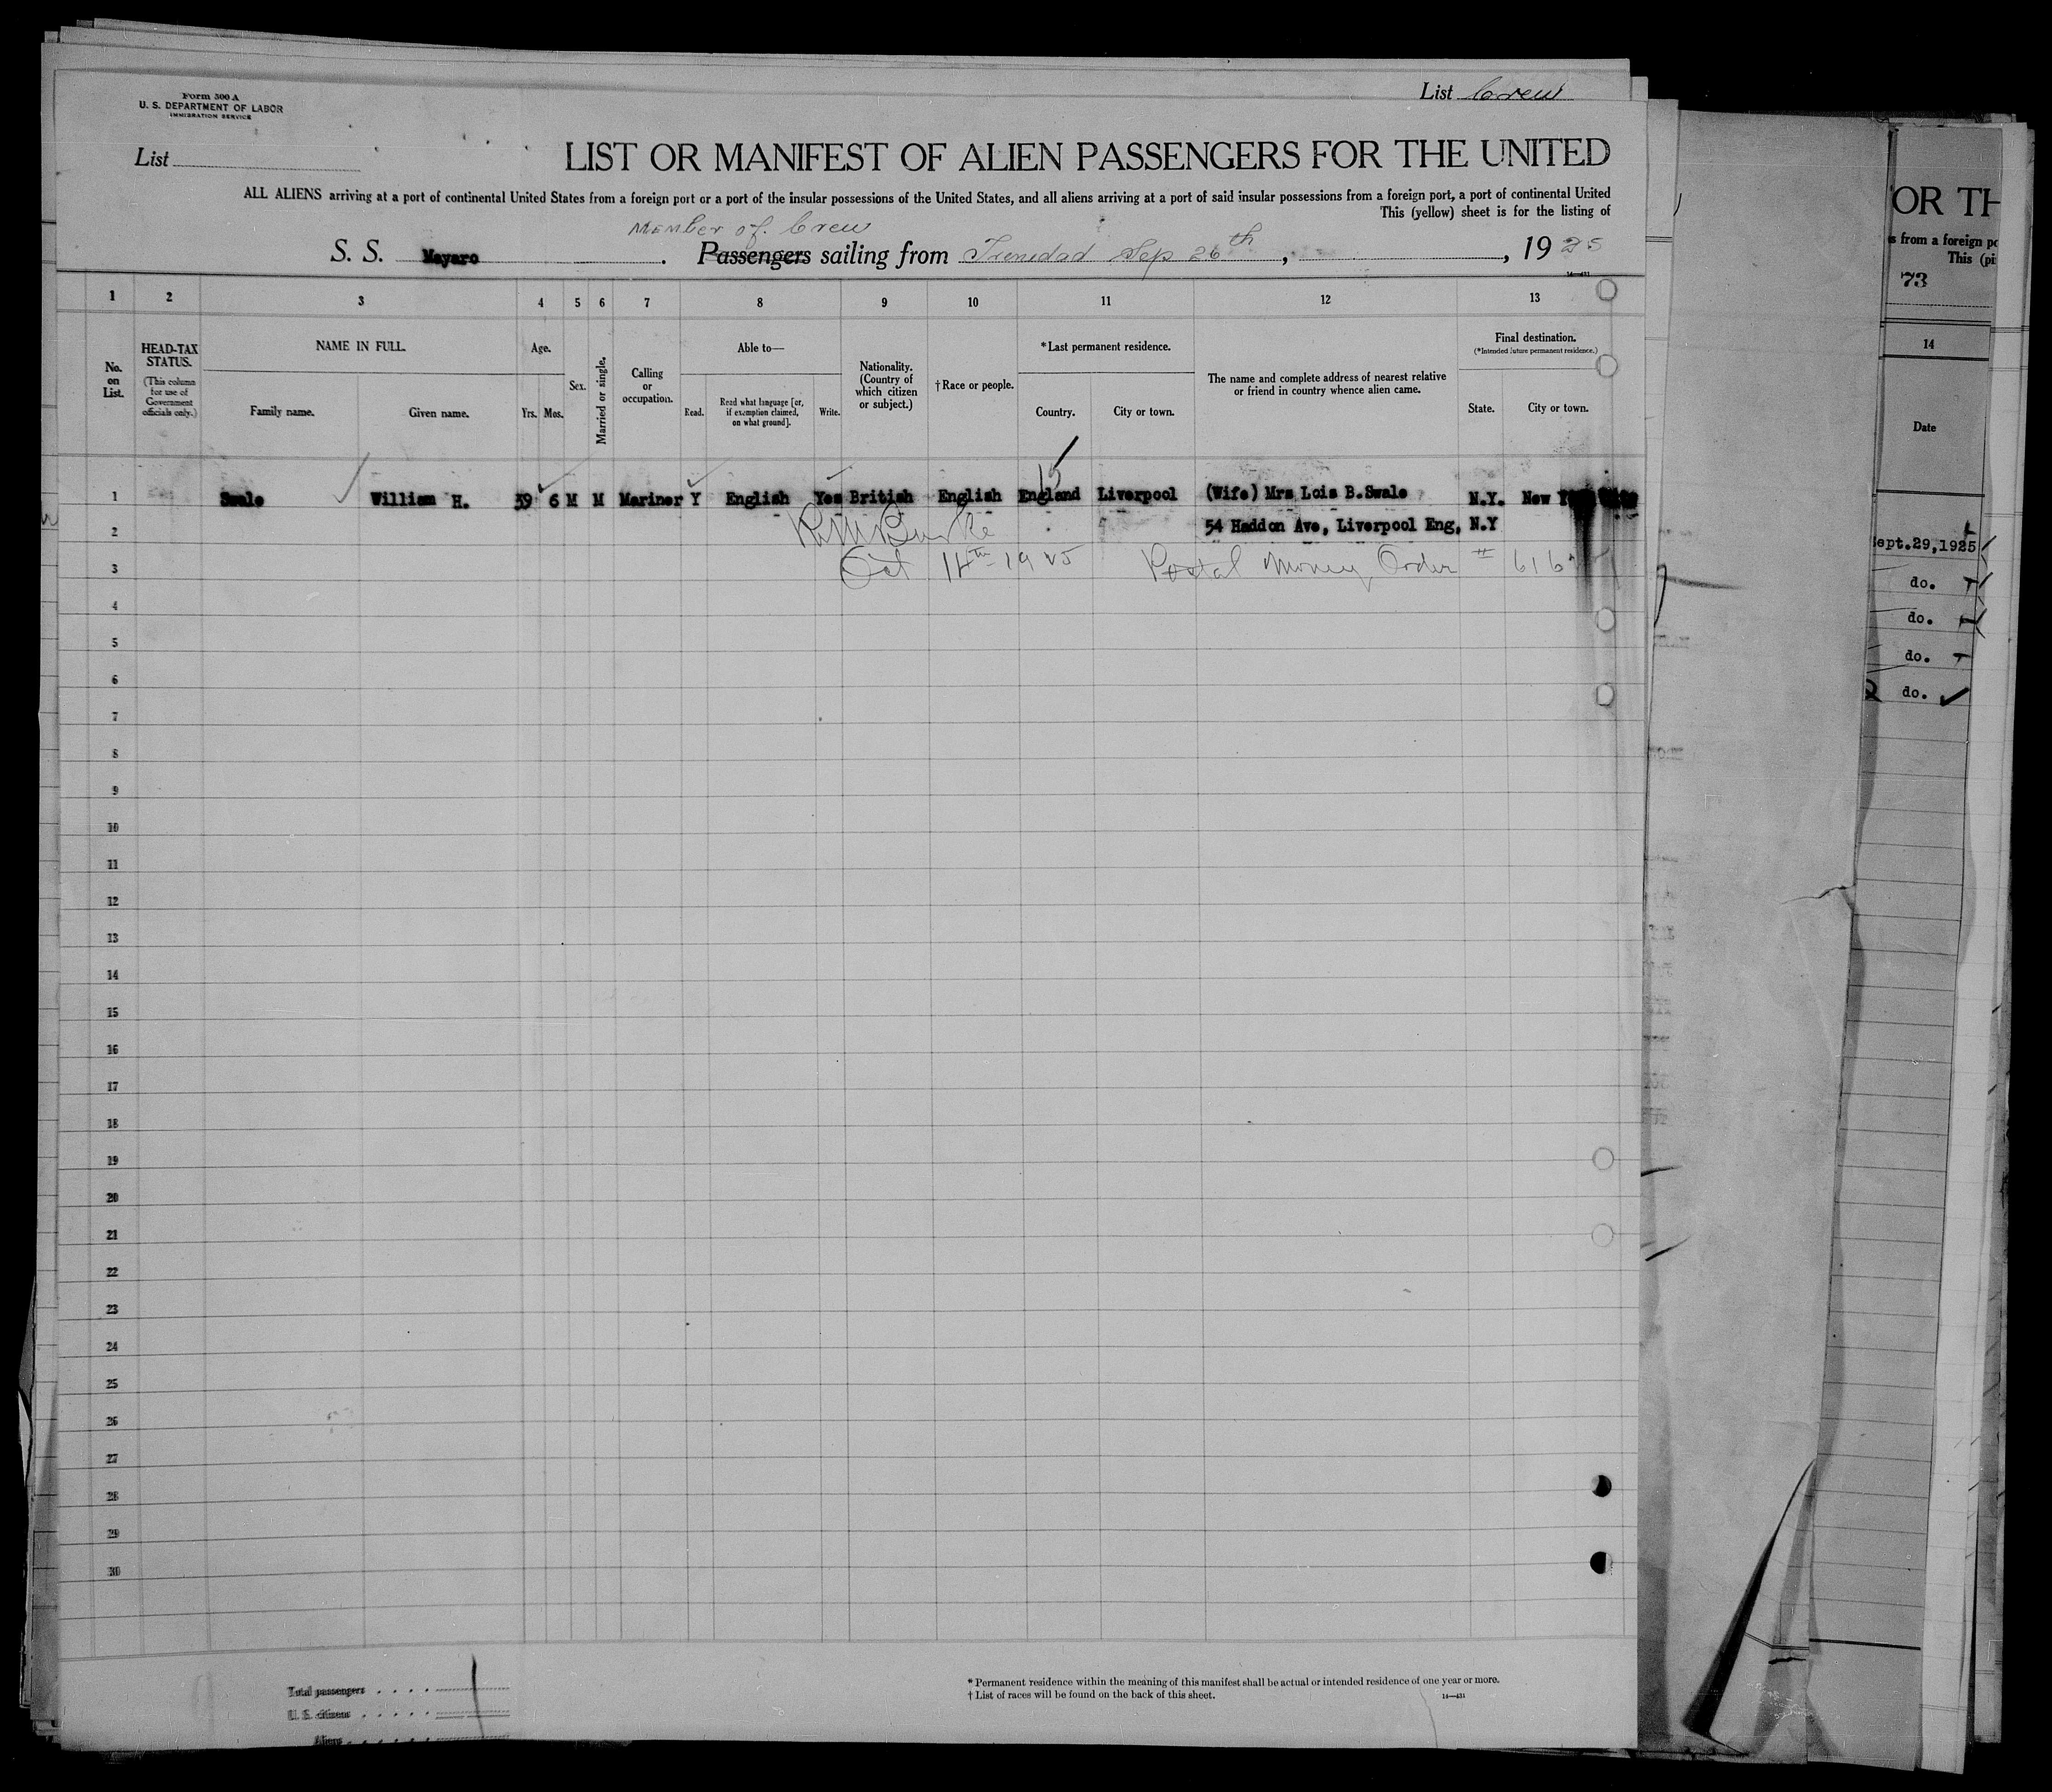 Form 500 A
U. S. DEPARTMENT OF LABOR
IMMIGRATION SERVICE
List Crew
List
LIST OR MANIFEST OF ALIEN PASSENGERS FOR THE UNITED
ALL ALIENS arriving at a port of continental United States from a foreign port or a port of the insular possessions of the United States, and all aliens arriving at a port of said insular possessions from a foreign port, a port of continental United
This (yellow) sheet is for the listing of
Member of Crew
S. S. Mayaro. Passengers sailing from Trinidad Sep 26th, , 1925
14—431
1 2 3 4 5 6 7 8 9 10 11 12 13
No. on List.
HEAD-TAX STATUS.
(This column for use of Government officials only.)
NAME IN FULL.
Family name. Given name.
Age.
Yrs. Mos.
Sex.
Married or single.
Calling or occupation.
Able to—
Read. Read what language [or, if exemption claimed, on what ground]. Write.
Nationality. (Country of which citizen or subject.)
†Race or people.
*Last permanent residence.
Country. City or town.
The name and complete address of nearest relative or friend in country whence alien came.
Final destination.
(*Intended future permanent residence.)
State. City or town.
15
1 Swale William H. 39 6 M M Mariner Y English Yes British English England Liverpool (Wife) Mrs Lois B.Swale N.Y. New
2 54 Haddon Ave, Liverpool Eng, N.Y
3 Oct 14th 1925 Postal Money Order # 616
4
5
6
7
8
9
10
11
12
13
14
15
16
17
18
19
20
21
22
23
24
25
26
27
28
29
30
Total passengers
U. S. citizens
Aliens
* Permanent residence within the meaning of this manifest shall be actual or intended residence of one year or more.
† List of races will be found on the back of this sheet.
14—431
OR TH
s from a foreign po
This (pi
73
14
Date
Sept.29,1925
do.
do.
do.
do.